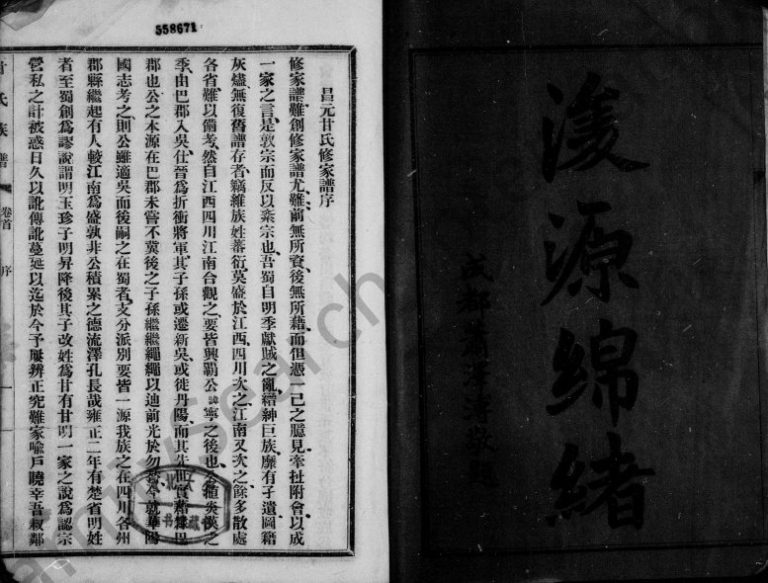 濬源綿緒
成都
558671
昌元甘氏修家譜序
修家譜難創修家譜尤難前無所資後無所藉而但憑一己之臆見牽扯附會以成
一家之言是敦宗而反以棄宗也吾蜀自明季獻賊之亂縉紳巨族靡有孑遺圖籍
灰燼無復舊譜存者竊維族姓蕃衍莫盛於江西四川次之江南又次之餘多散處
各省難以備考然自江西四川江南合觀之要皆興霸公諱寧之後也公值炎漢之
季由巴郡入吳仕晉為折衝將軍其子孫或遷新吳或徙丹陽而其先世實舊隸巴
郡也公之木源在巴郡未嘗不冀後之子孫繼繼繩繩以迪前光於勿替今就華陽
國志考之則公雖適吳而後嗣之在蜀者支分派別要皆一源我族之在四川各州
郡縣繼起有人較江南為盛孰非公積累之德流澤孔長哉雍正二年有楚省明姓
者至蜀創為謬說謂明玉珍子明昇降後其子改姓為甘有甘明一家之說為認宗
營私之計被惑日久以訛傳訛蔓延以迄於今予屢辨正究難家喻戶曉幸吾叔鄰
甘氏族譜
卷首
序